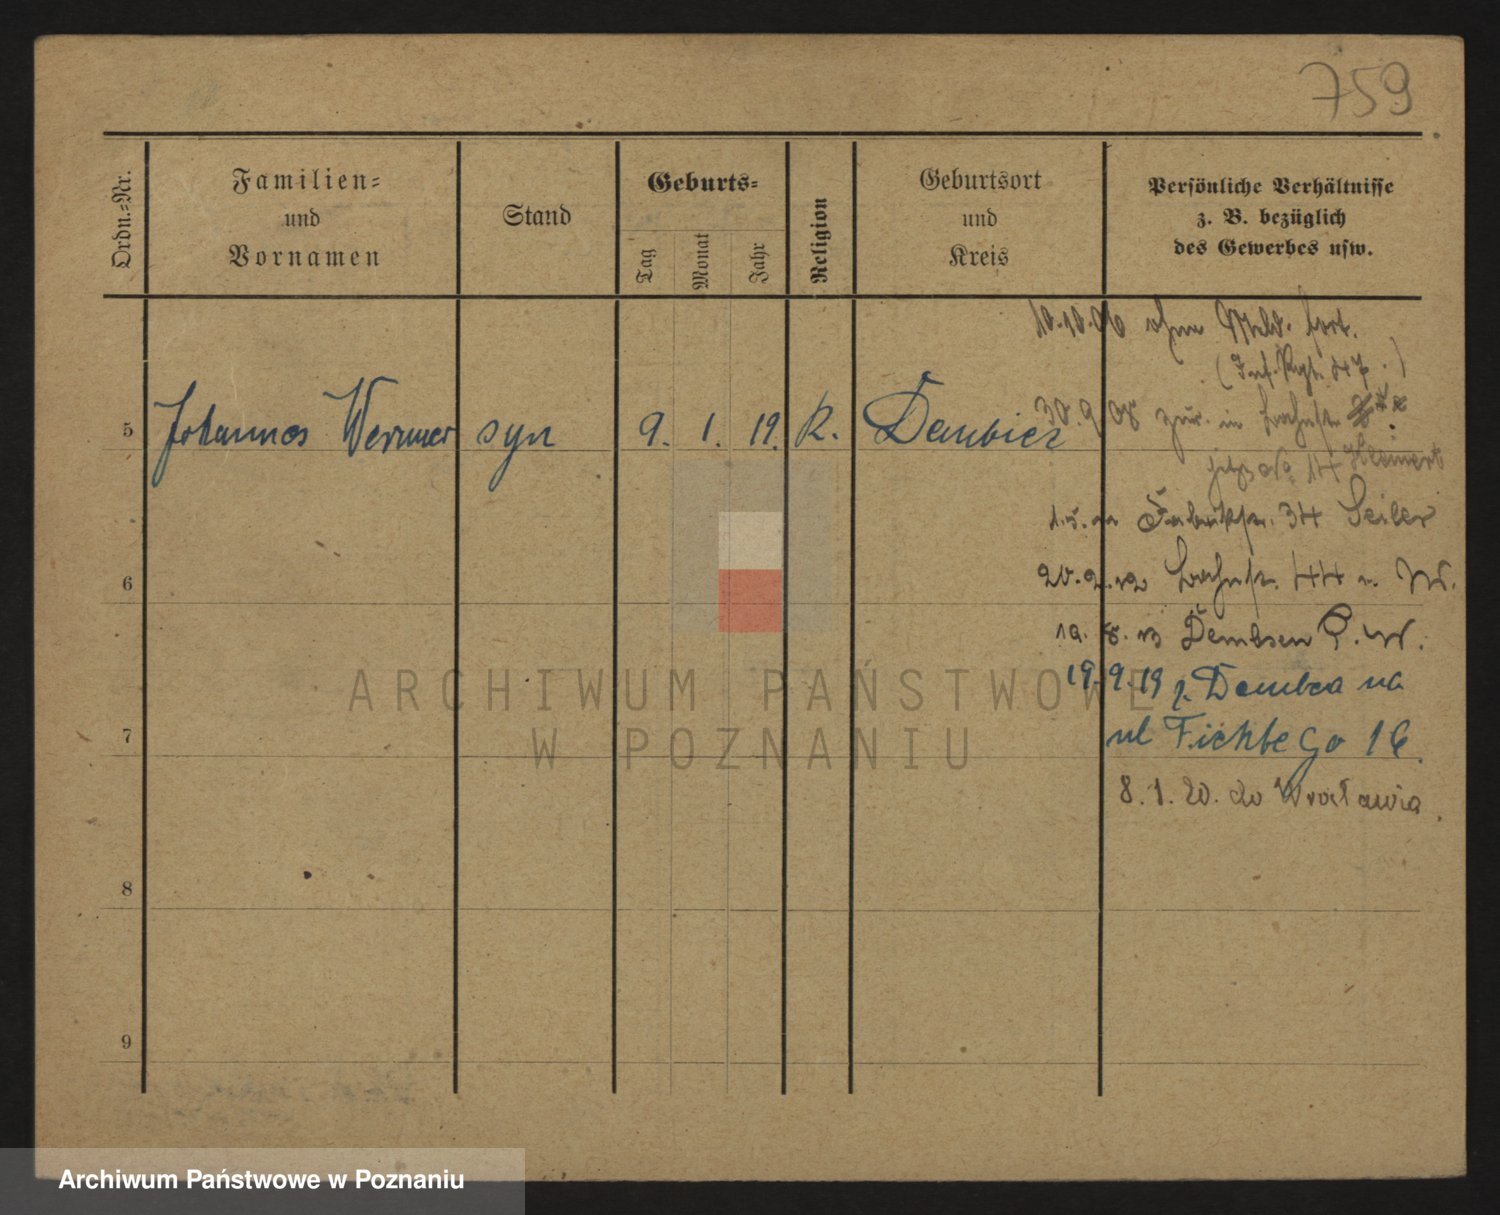 759
Ordn.-Nr.
Familien-
und
Vornamen
Stand
Geburts-
Tag
Monat
Jahr
Religion
Geburtsort
und
Kreis
Persönliche Verhältnisse
z. B. bezüglich
des Gewerbes usw.
10.10.06 ohne Meld. fort.
(Inf. Rgt. 47.)
5 Johannes Werner syn 9. 1. 19. R. Dembiec
30.9.08 zur. in Bahnstr.
14
34 Seiler
6
20.2.12 Bahnstr. 44
Dembsen P. W.
19.9.19 z Dembca na
7
ul Fichtego 16.
8.1.20. do Wrocławia.
8
9
ARCHIWUM PAŃSTWOWE
W POZNANIU
Archiwum Państwowe w Poznaniu